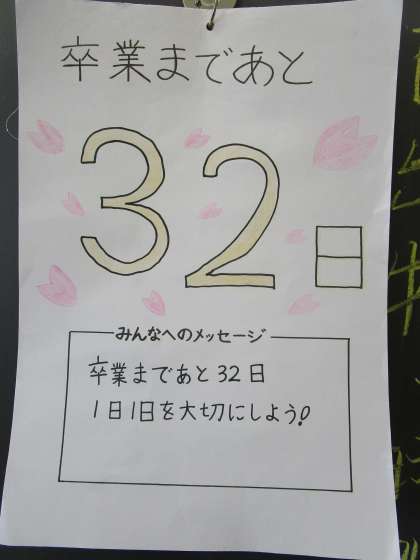 卒業まであと
32日
みんなへのメッセージ
卒業まであと32日
1日1日を大切にしよう!